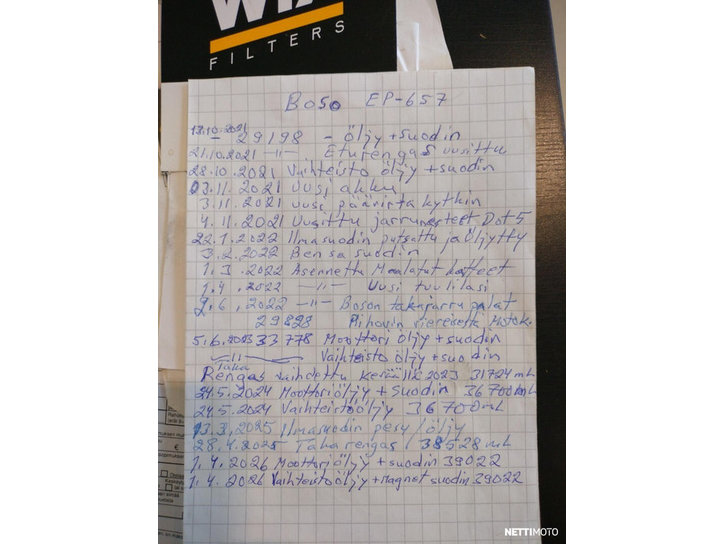 WIX
FILTERS
Boso EP-657
13.10.2021 - 29198 - öljy + suodin
21.10.2021 -11- Eturengas uusittu
28.10.2021 Vaihteisto öljy + suodin
03.11.2021 uusi akku
3.11.2021 uusi päävirta kytkin
4.11.2021 Uusittu jarrunesteet Dot 5
22.1.2022 Ilmasuodin putsattu ja öljytty
3.2.2022 Bensa suodin
1.3.2022 Asennettu Maalatut katteet
1.4.2022 -11- Uusi tuulilasi
2.6.2022 -11- Boson takajarru palat
29828 Pihovin viereisestä Motok.
5.6.2023 33778 Moottori öljy + suodin
-11- Vaihteisto öljy + suodin
Taka
Rengas vaihdettu kesällä 2023 31724 mh
24.5.2024 Moottoriöljy + suodin 36700 mh
24.5.2024 Vaihteistoöljy 36700 mh
13.3.2025 Ilmasuodin pesy / öljy
28.4.2025 Taka rengas / 38528 mh
1.4.2026 Moottoriöljy + suodin 39022
1.4.2026 Vaihteistoöljy + Magnet suodin 39022
NETTIMOTO